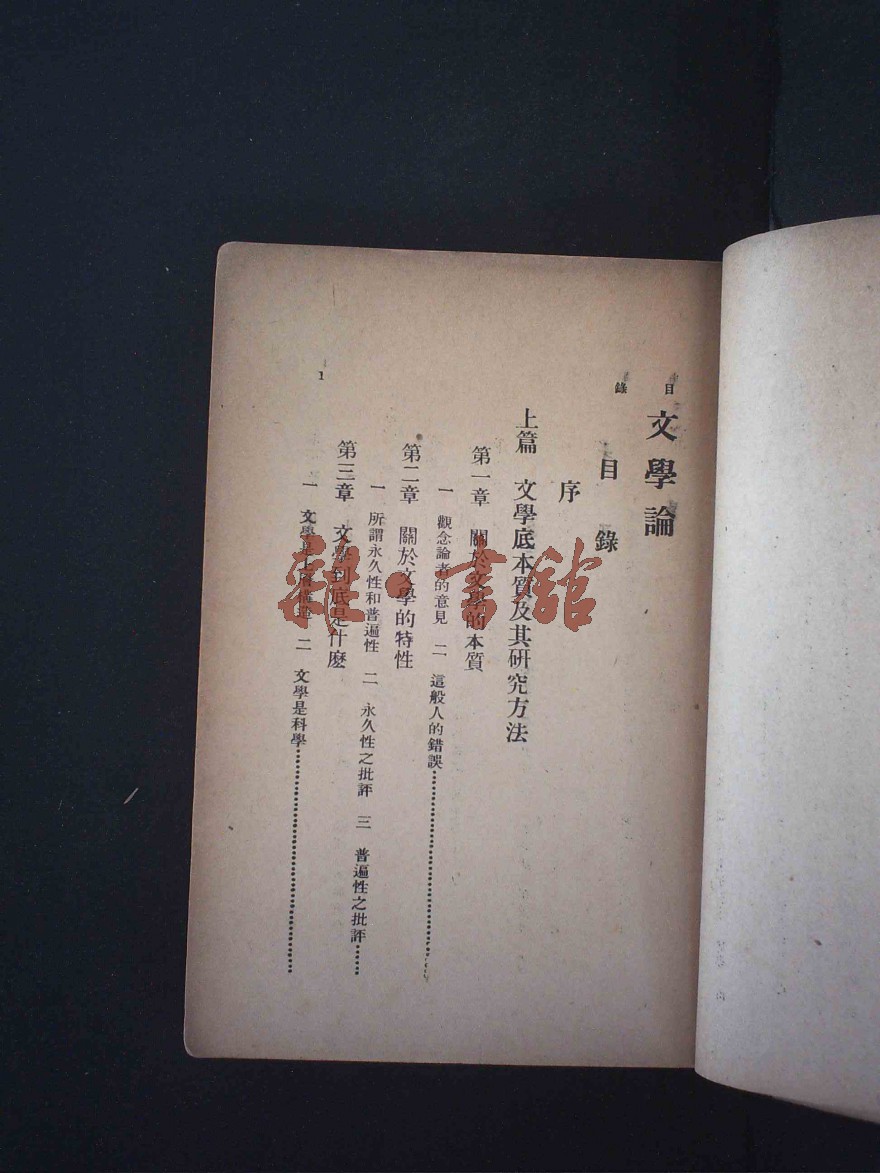 目錄
文學論
目錄
序
上篇 文學底本質及其研究方法
第一章 關於文學的本質
一 觀念論者的意見 二 這般人的錯誤
第二章 關於文學的特性
一 所謂永久性和普遍性 二 永久性之批評 三 普遍性之批評
第三章 文學到底是什麼
一 文學是上層構造 二 文學是科學
1
雜·書館